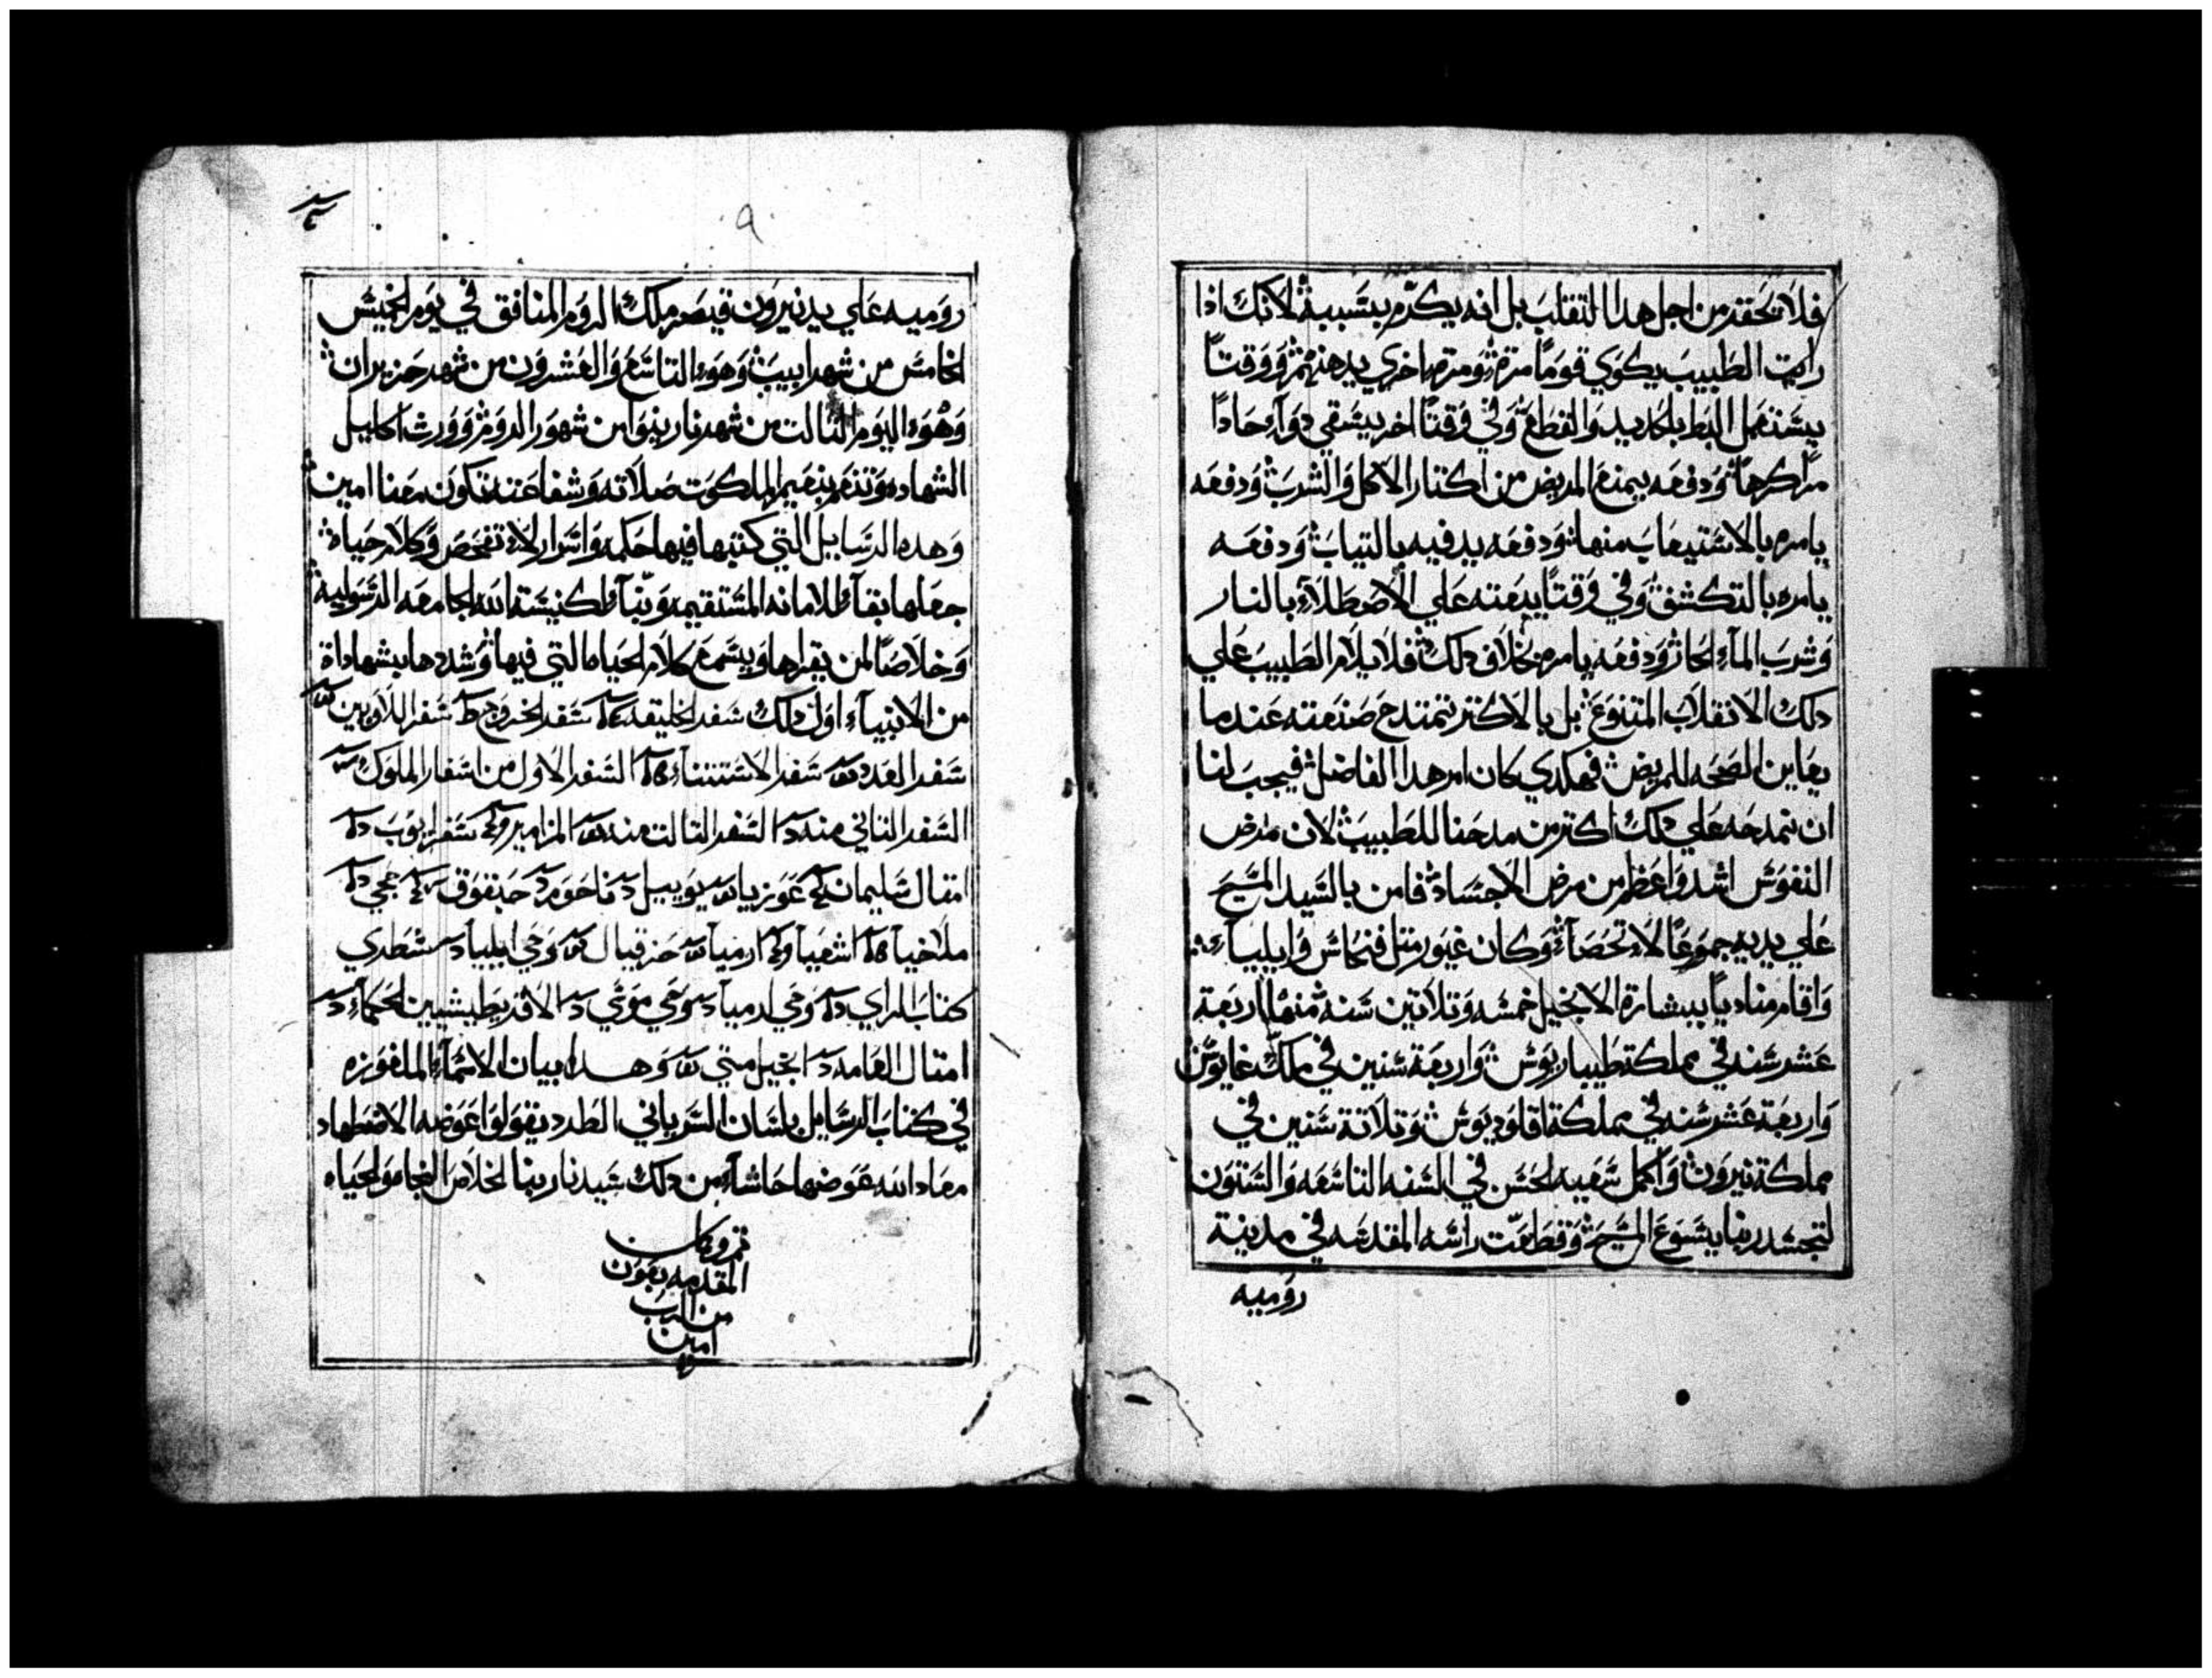 فلا تحقد من اجل هدا التقلب بل انه يكرم بسببه لانك ادا
رايت الطبيب يكوي قوما مرة ومرة اخري يدهنهم ووقتا
يستعمل البط بالحديد والقطع وفي وقتا اخر يسقي دوآء حادا
مرا كرها ودفعه يمنع المريض من اكتار الاكل والشرب ودفعه
يامره بالاستيعاب منها ودفعه يدفيه بالتياب ودفعه
يامره بالتكشف وفي وقتا يبعته علي الاصطلاء بالنار
وشرب المآء الحار ودفعه يامره بخلاف دلك فلا يلام الطبيب علي
دلك الانقلاب المتنوع بل بالاكتر تمتدح صنعته عندما
يعاين الصحه للمريض فهكدي كان امر هدا الفاضل فيجب لنا
ان نمدحه علي دلك اكتر من مدحنا للطبيب لان مرض
النفوس اشد واعظم من مرض الاجساد فامن بالسيد المسيح
علي يديه جموعا لا تحصآ وكان غيور متل فنحاس وايلياء
واقام مناديا ببشارة الانجيل خمسه وتلاتين سنه منها اربعة
عشر سنه في مملكة طيباريوس واربعة سنين في ملك غايوس
واربعة عشر سنه في مملكة اقلوديوس وتلاتة سنين في
مملكة نيرون واكمل سعيه الحسن في السنه التاسعه والستون
لتجسد ربنا يسوع المسيح وقطعت راسه المقدسه في مدينة
روميه
٩
روميه علي يد نيرون قيصر ملك الروم المنافق في يوم الخميس
الخامس من شهر ابيب وهو التاسع والعشرون من شهر حزيران
وهو اليوم التالت من شهر نارينوا من شهور الروم وورت اكليل
الشهاده وتنعم بنعيم الملكوت صلاته وشفاعته تكون معنا امين
وهده الرسايل التي كتبها فيها حكمه واسرار لا تفحص وكلام حياه
جعلها بقآ للامانه المستقيمه وبنآ لكنيسة الله الجامعه الرسوليه
وخلاصا لمن يقراها ويسمع كلام الحياه التي فيها وشددها بشهاداة
من الانبياء اول دلك سفر الخليقه سفر الخروج سفر اللاويين
سفر العدد سفر الاستتناء السفر الاول من اسفار الملوك
السفر التاني منه السفر التالت منه المزامير سفر ايوب
امتال سليمان عوزيا يوييل ناحوم حبقوق حجي
ملاخيا اشعيا ارميا حزقيال وحي ايليا سطري
كتاب الراي وحي ارميا وحي موسي الاقريطيشيين الحكماء
امتال العامه انجيل متي وهدا بيان الاسمآء الملغوزه
في كتاب الرسايل بلسان السرياني الطرد يقولوا عوضه الاضطهاد
معاد الله عوضها حاشآ من دلك سيدنا ربنا الخلاص النجاه والحياه
تم وكمل
المقدمه بعون
من الرب
امين